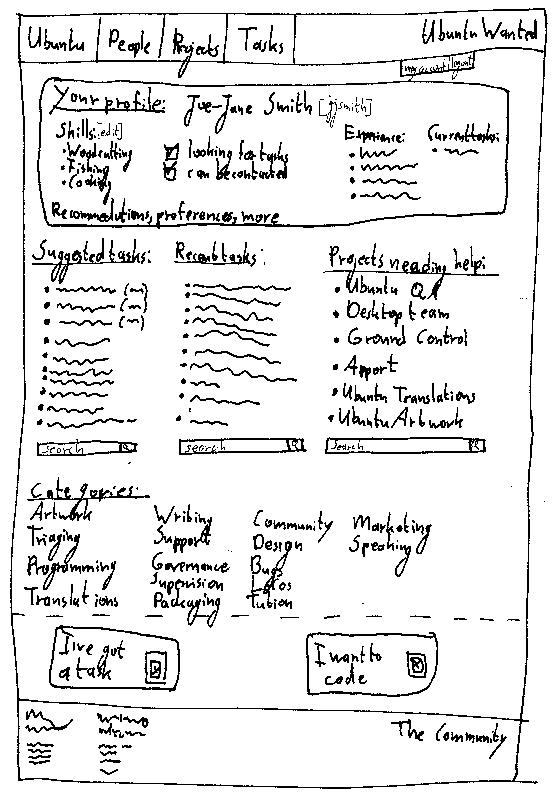 Ubuntu People Projects Tasks Ubuntu Wanted
my account logout
Your profile: Joe-Jane Smith [jjsmith]
Skills:[edit]
• Woodcutting
• Fishing
• Cooking
looking for tasks
can be contacted
Experience:
Current tasks:
Recommedutions, preferences, more
Suggested tasks:
search
Recent tasks:
search
Projects neading help:
• Ubuntu QA
• Desktop team
• Ground Control
• Apport
• Ubuntu Translations
• Ubuntu Artwork
Search
Categories:
Artwork Writing Community Marketing
Triaging Support Design Speaking
Programming Governance Bugs
Supervision
Translations Packaging
I've got
a task
I want to
code
The Community